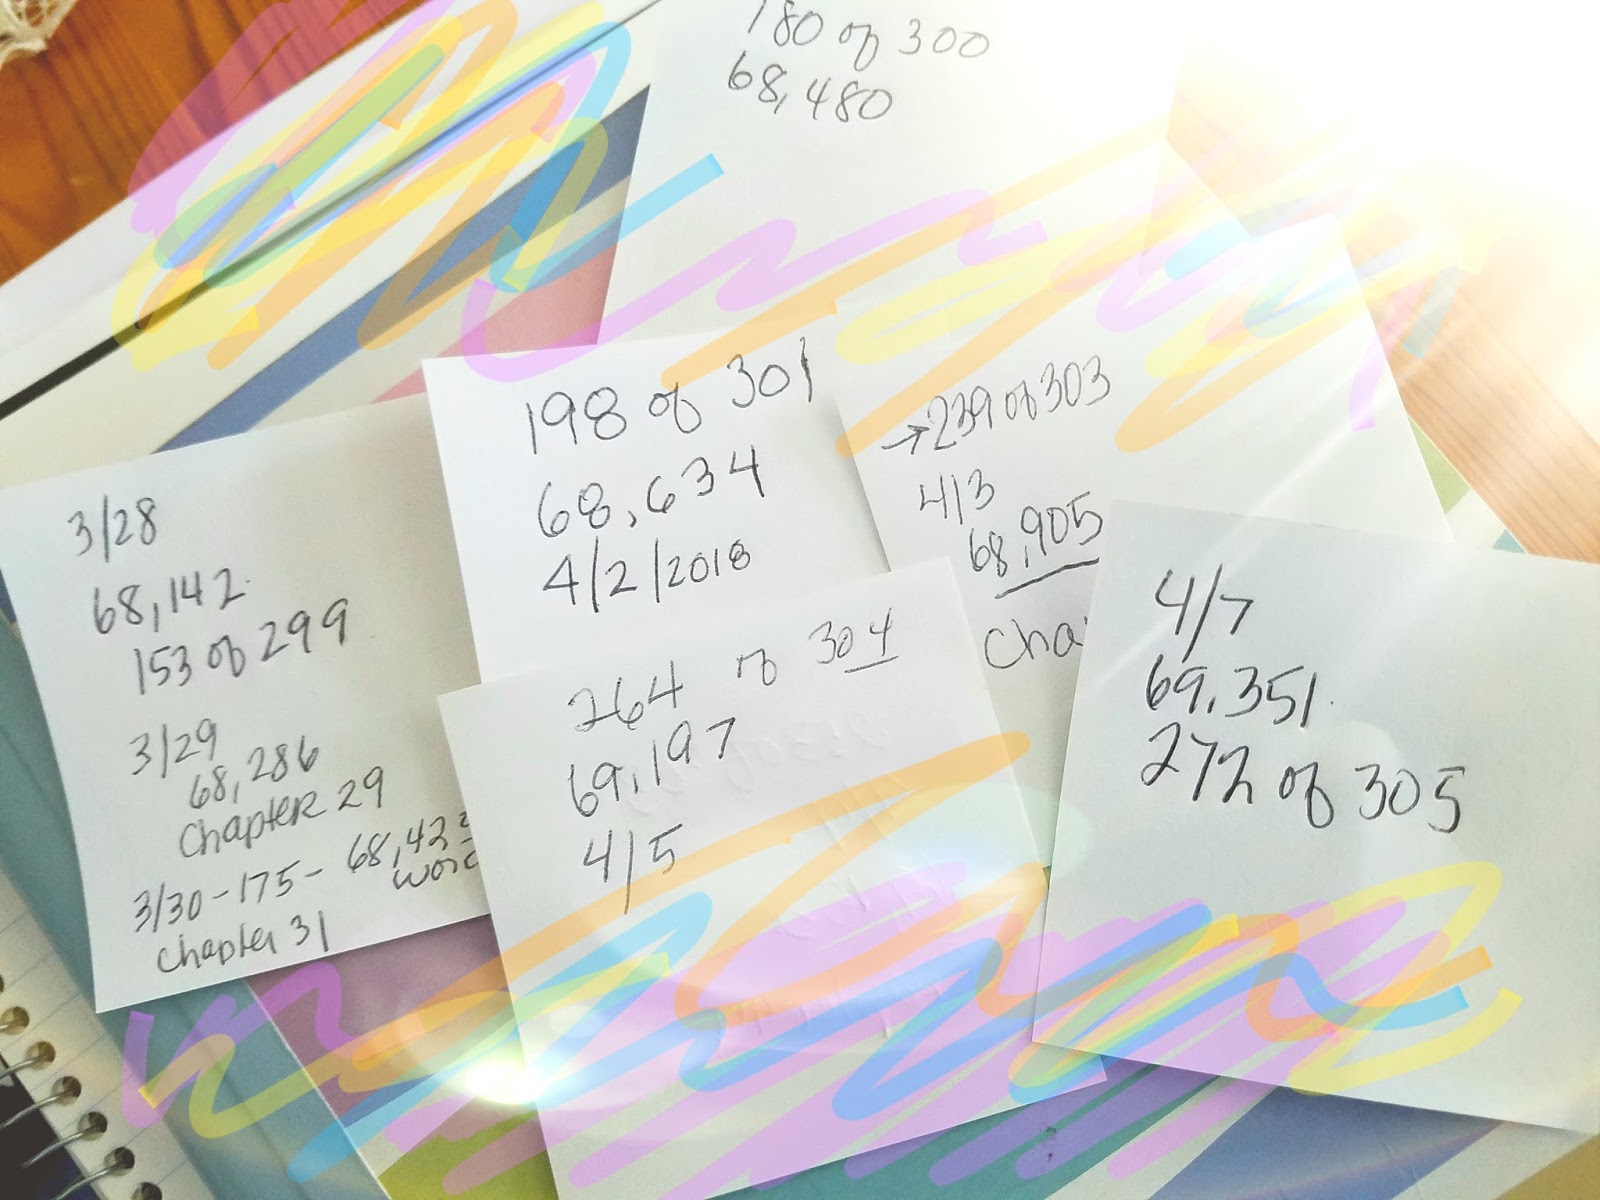 180 of 300
68,480
198 of 301
68,634
4/2/2018
→239 of 303
4/3
68,905
Cha
3/28
68,142.
153 of 299
3/29
68,286
Chapter 29
3/30-175-68,42
Chapter 31
264 of 304
69,197
4/5
4/7
69,351.
272 of 305